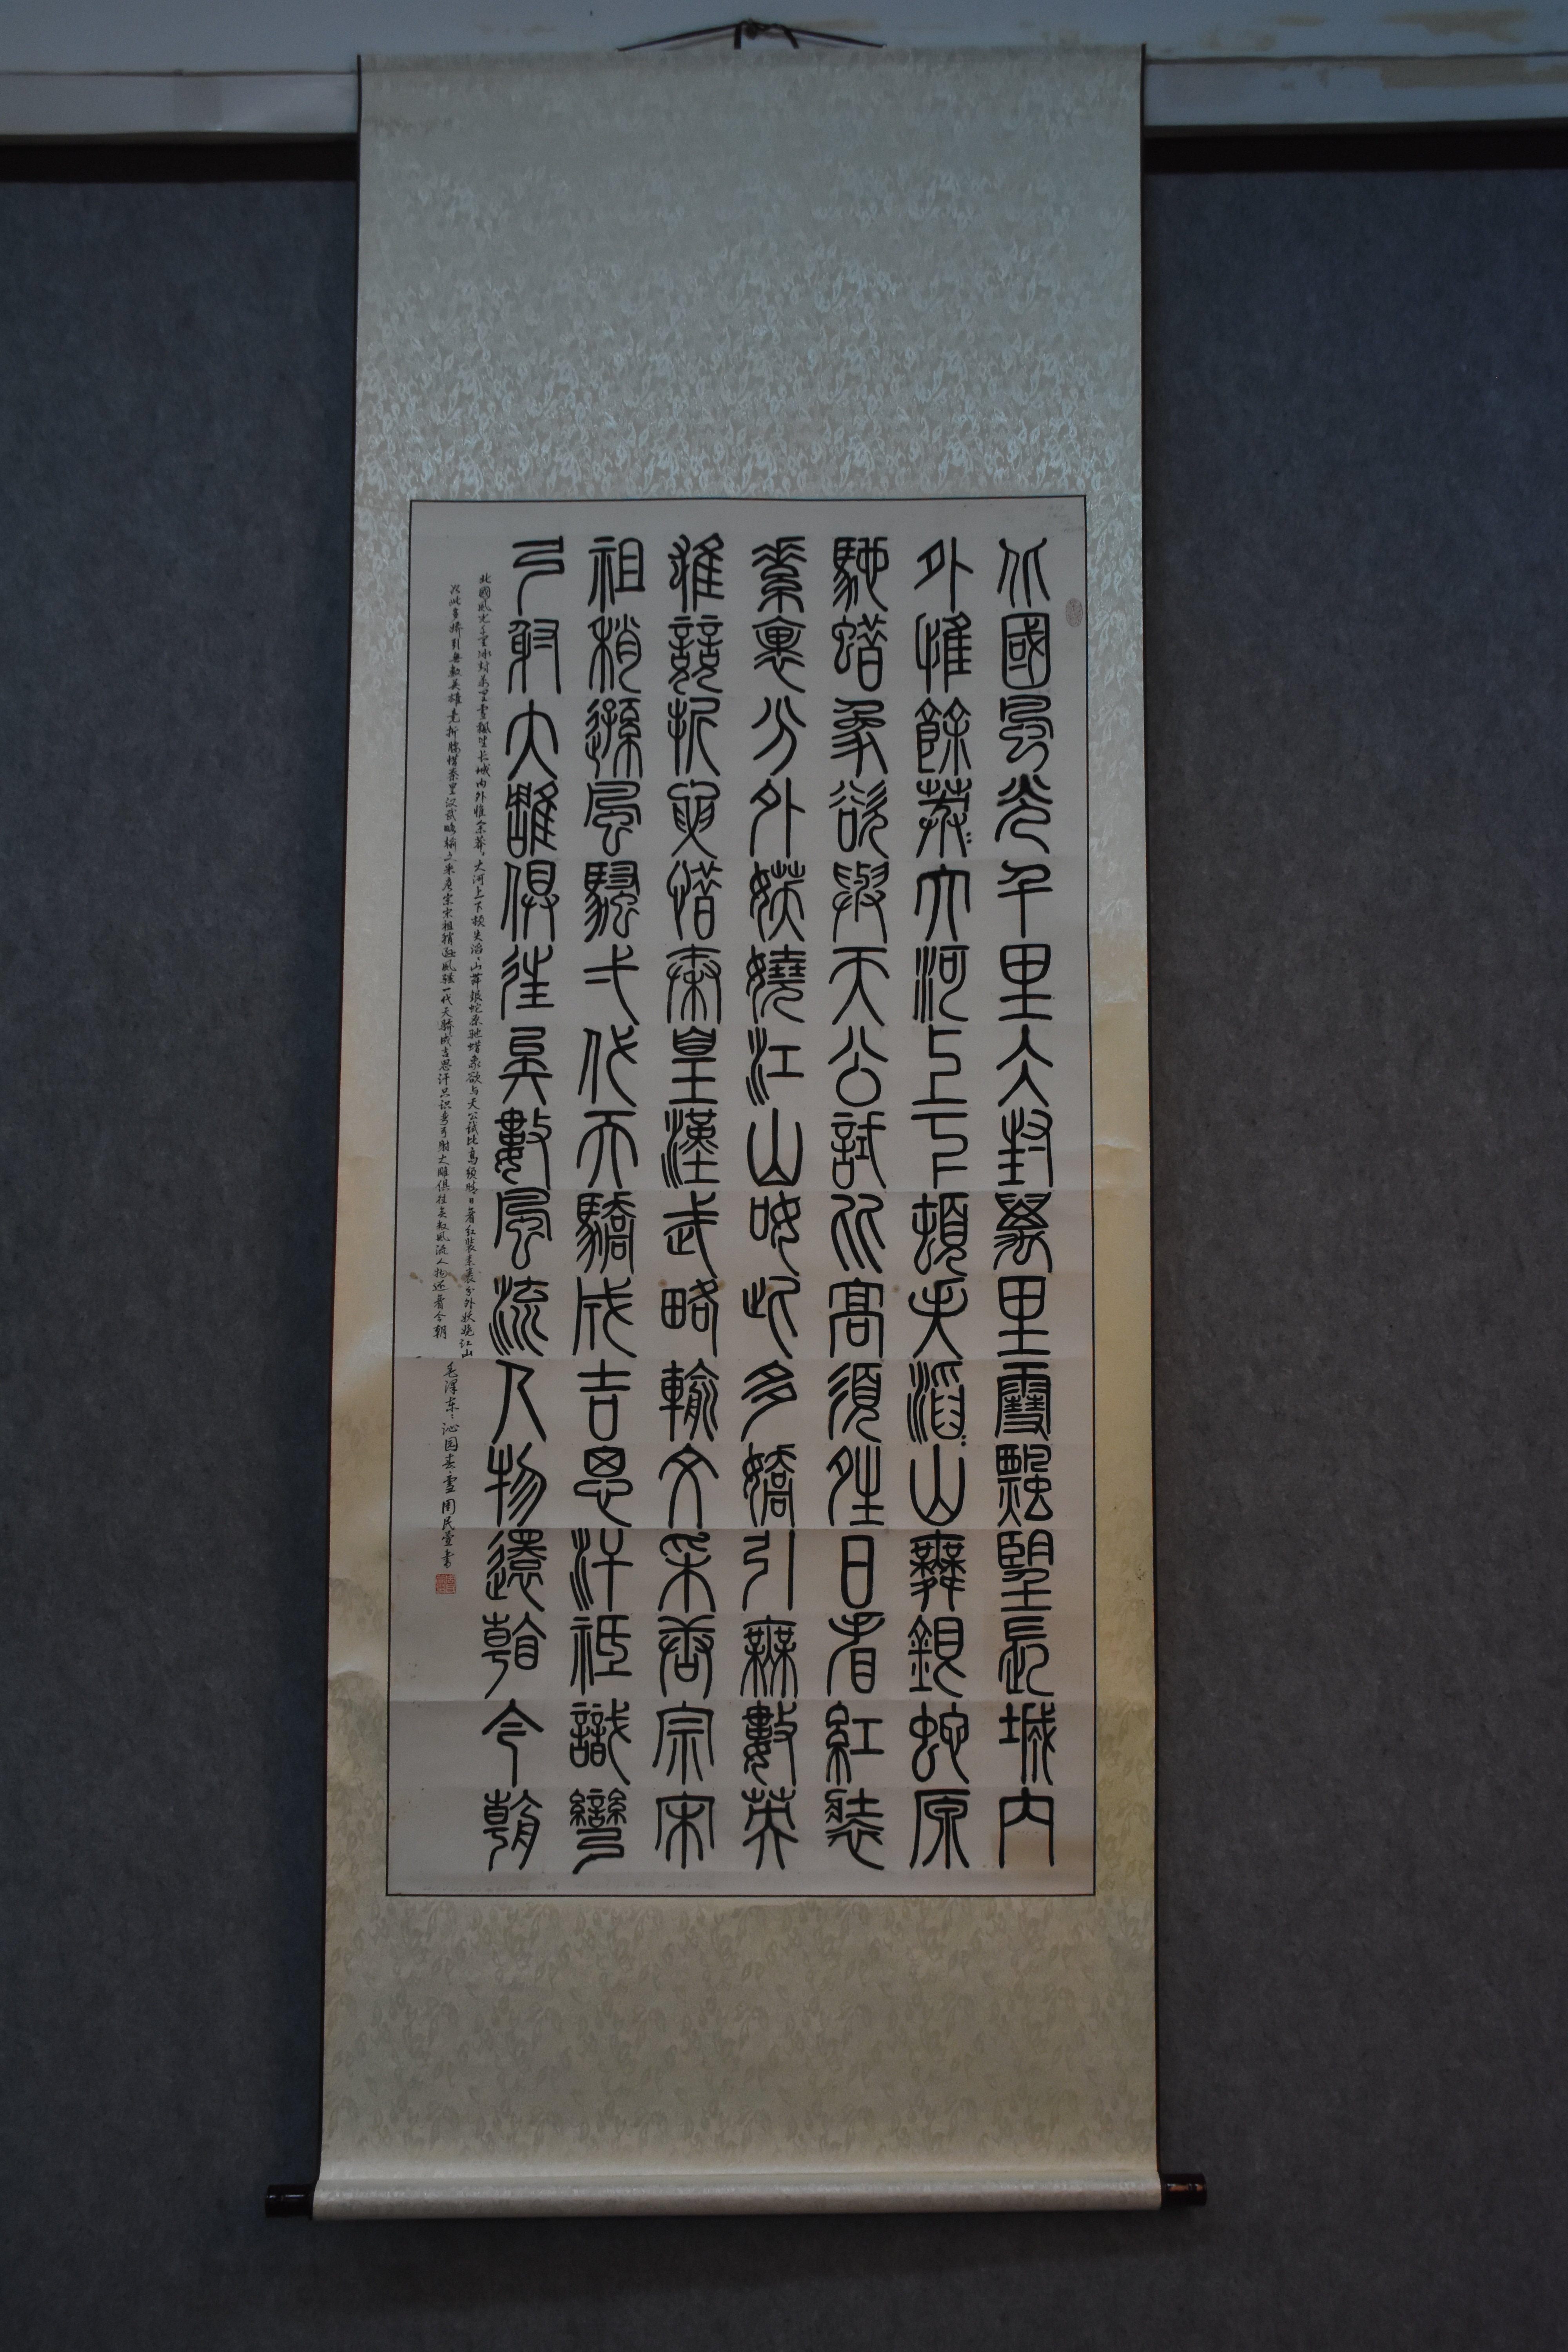 北國風光千里仌封萬里雪飄望長城內
外惟餘莽〻大河上下頓失滔〻山舞銀蛇原
馳蜡象欲與天公試比高須晴日看紅裝
素裹分外妖嬈江山如此多嬌引無數英
雄競折腰惜秦皇漢武略輸文采唐宗宋
祖稍遜風騷弌代天驕成吉思汗祇識彎
弓射大雕俱往矣數風流人物還看今朝
北國风光千里冰封万里雪飘望长城内外惟余莽〻大河上下顿失滔〻山舞银蛇原驰蜡象欲与天公试比高须晴日看红装素裹分外妖娆江山
如此多娇引无数英雄竞折腰惜秦皇汉武略输文采唐宗宋祖稍逊风骚一代天骄成吉思汗只识弯弓射大雕俱往矣数风流人物还看今朝 毛泽东：沁园春·雪 周民壹书